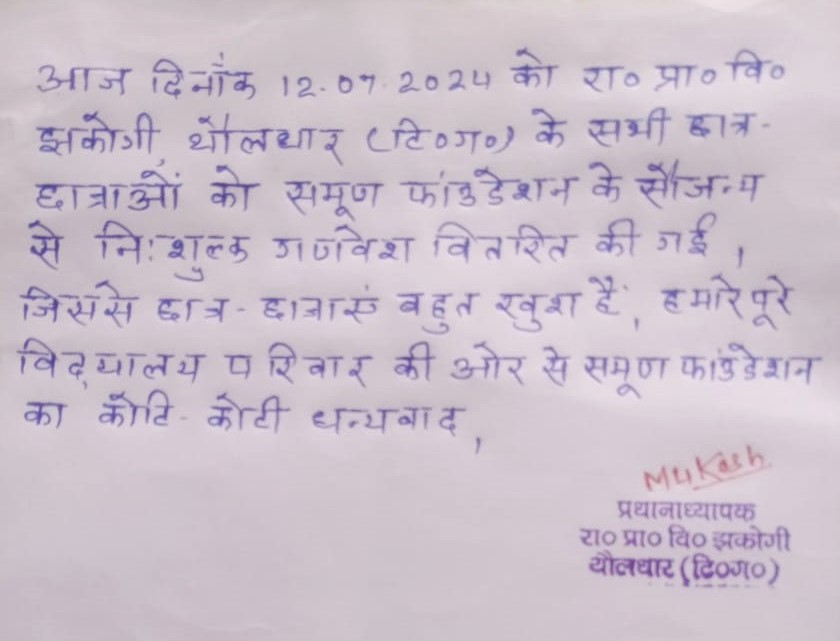 आज दिनाँक 12.07.2024 को रा० प्रा० वि०
झकोगी, थौलधार (टि०ग०) के सभी छात्र-
छात्राओं को समूण फांउडेशन के सौजन्य
से नि:शुल्क गणवेश वितरित की गई,
जिससे छात्र-छात्राएं बहुत खुश हैं, हमारे पूरे
विद्यालय परिवार की ओर से समूण फांउडेशन
का कोटि-कोटी धन्यवाद,
Mukesh
प्रधानाध्यापक
रा० प्रा० वि० झकोगी
थौलधार (टि०ग०)